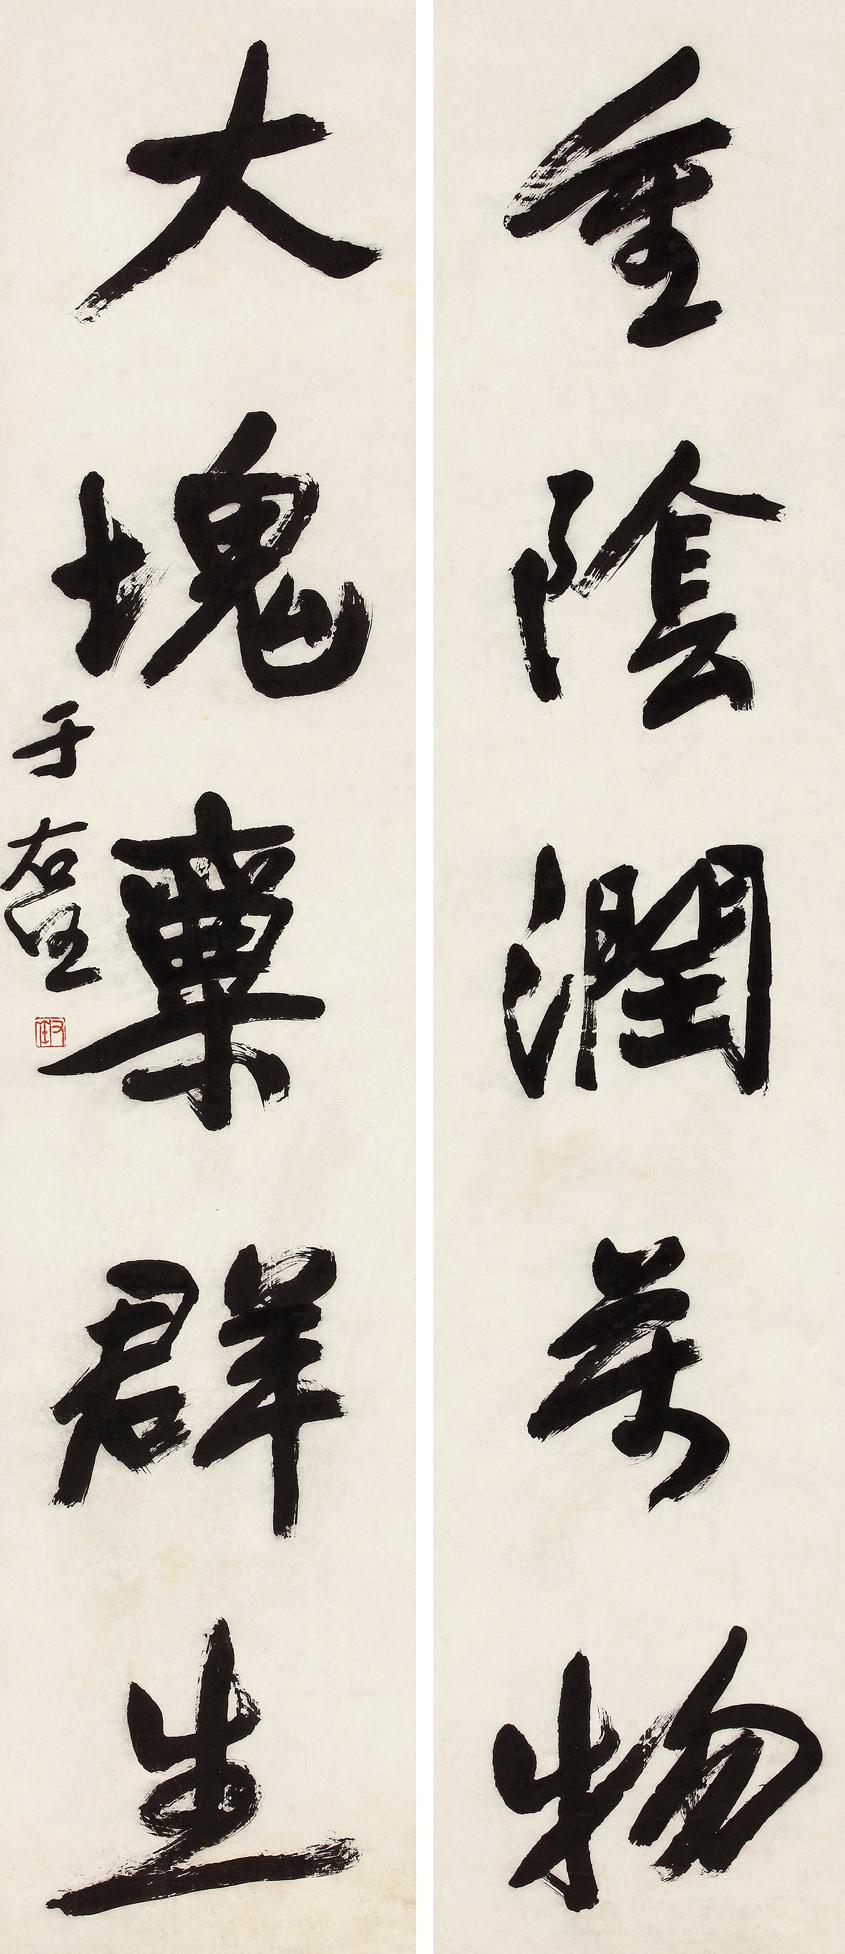 重陰潤萬物
大塊稟群生
于右任
右任